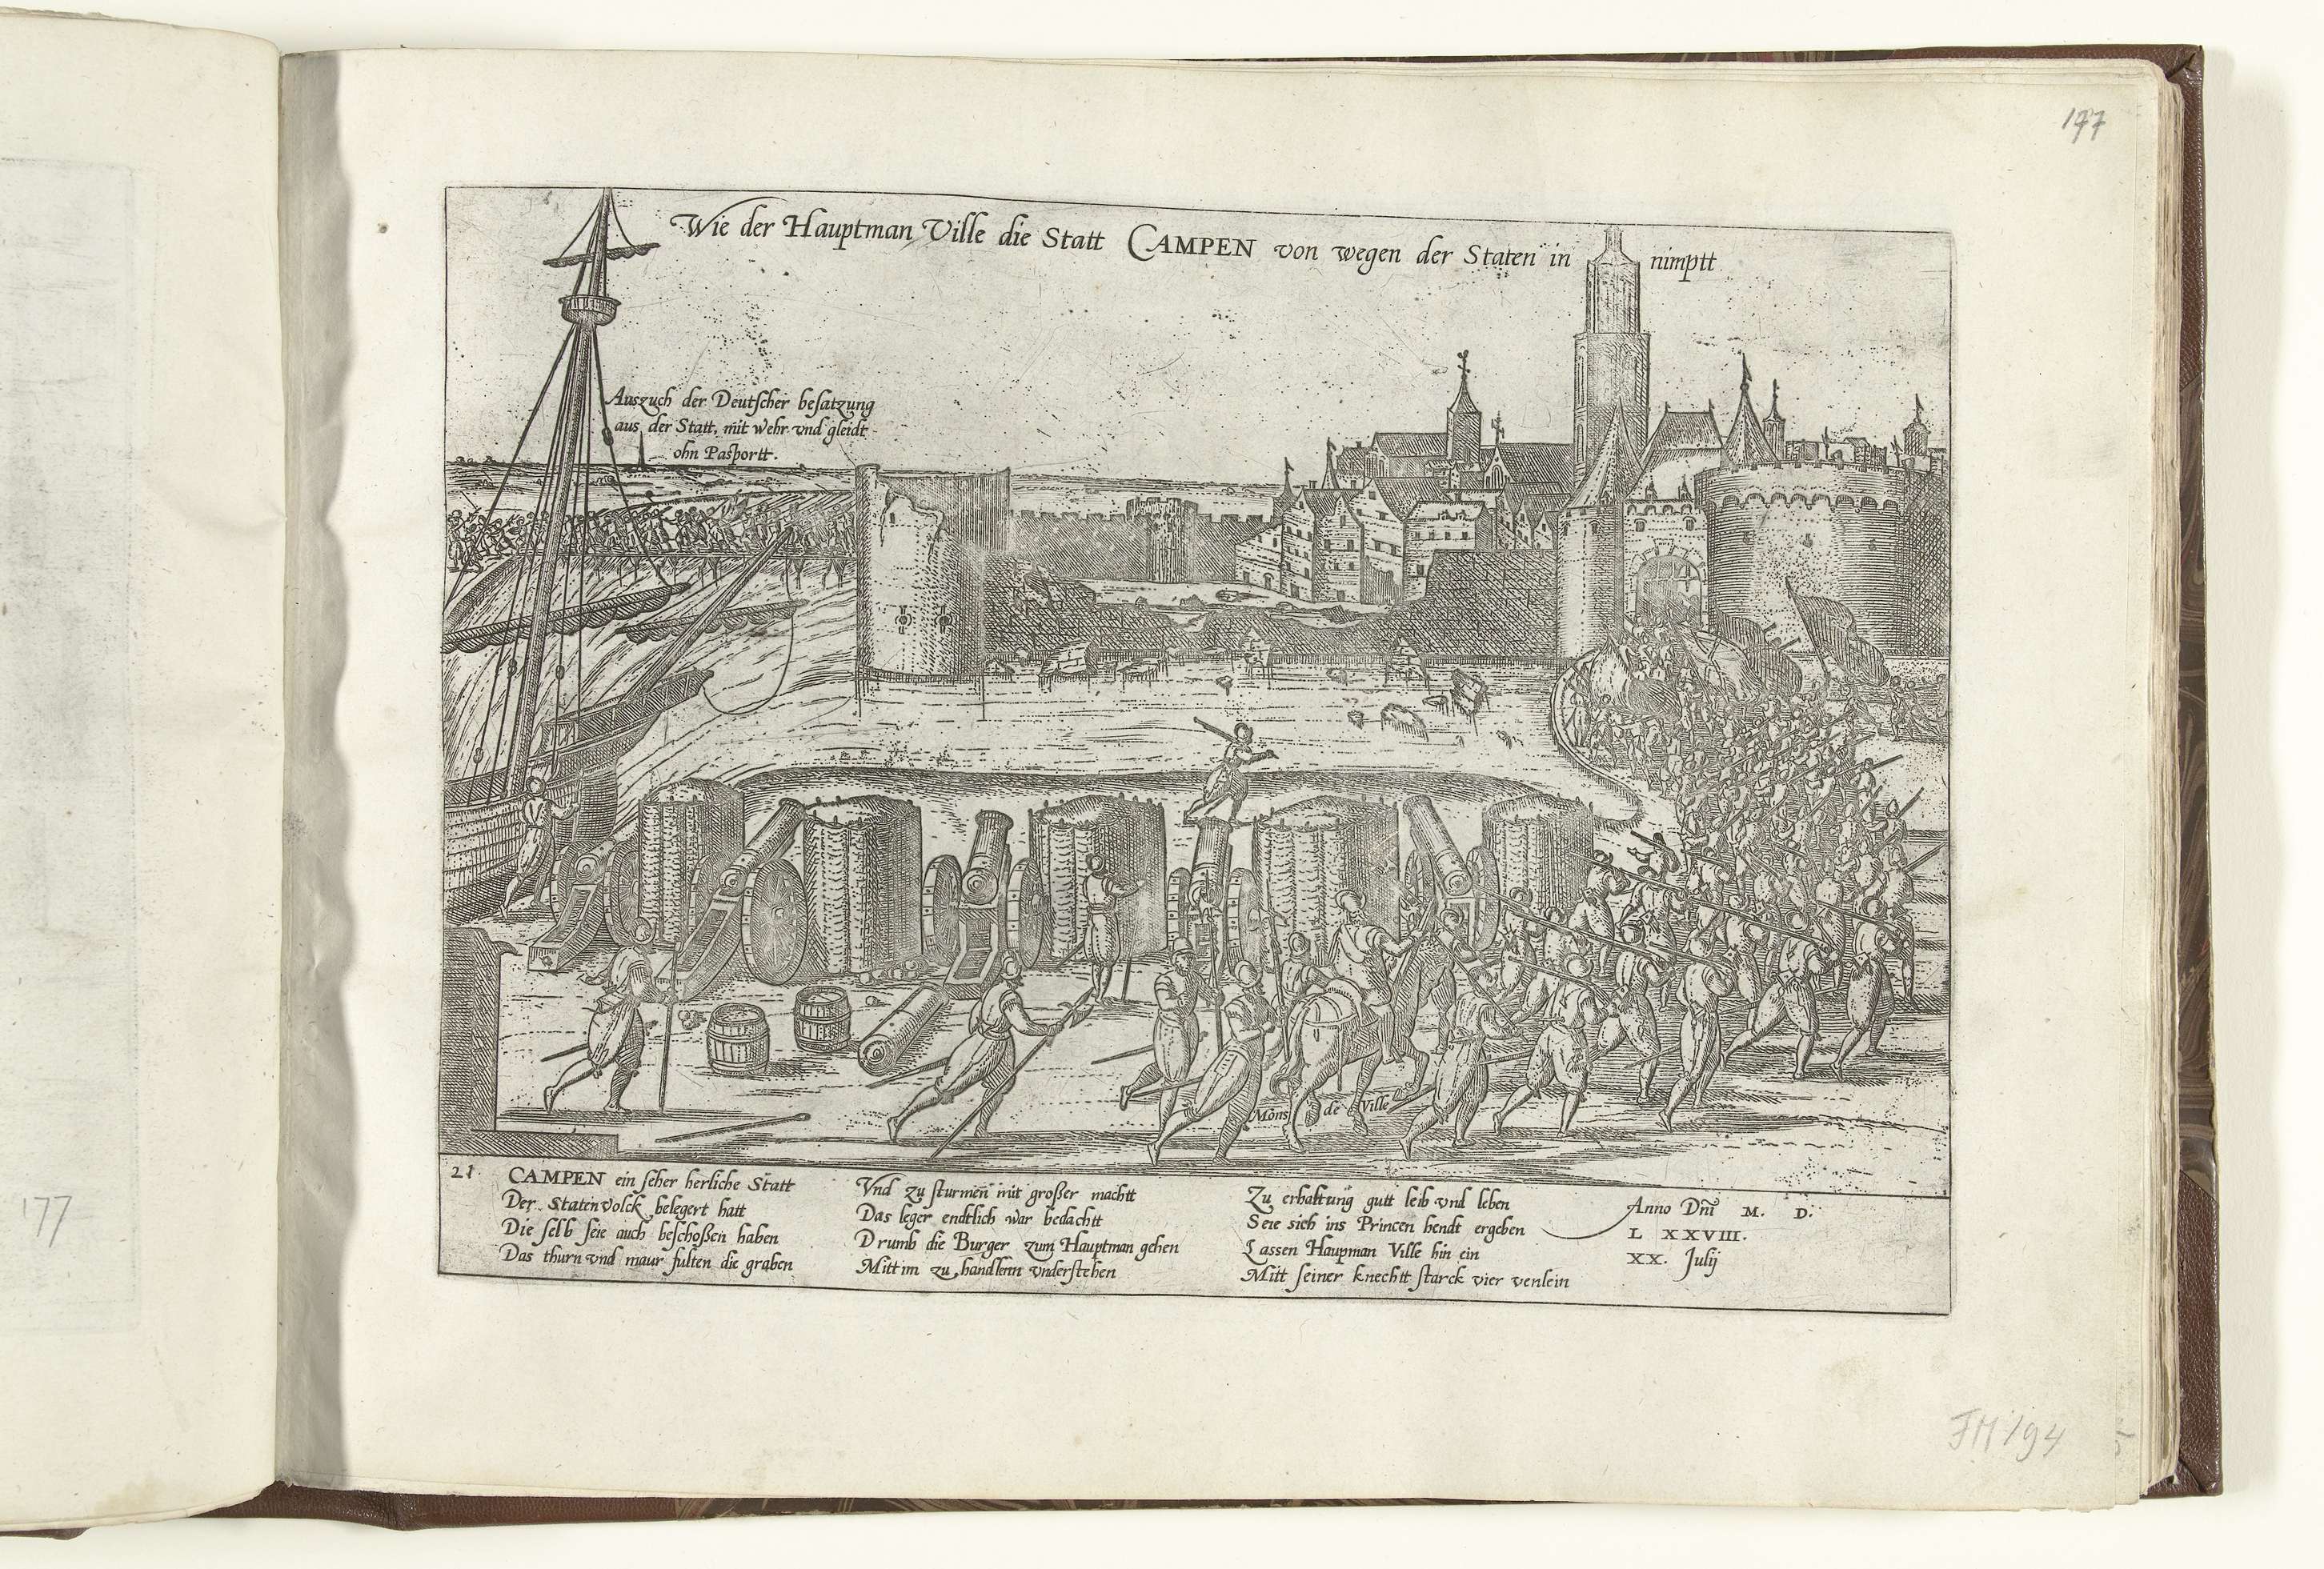 177
Wie der Hauptman Ville die Statt CAMPEN von wegen der Staten in nimptt
Auszuch der Deutscher besatzung
aus der Statt, mit wehr vnd gleidt
ohn Pasportt.
Mons de Ville
21.
CAMPEN ein seher herliche Statt
Der Statenvolck belegert hatt
Die selb seie auch beschoßen haben
Das thurn vnd maur fulten die graben
Vnd zu sturmen mit großer machtt
Das leger endtlich war bedachtt
Drumb die Burger zum Hauptman gehen
Mitt im zu handlenn vnderstehen
Zu erhaltung gutt leib vnd leben
Seie sich ins Princen hendt ergeben
Lassen Haupman Ville hin ein
Mitt seiner knechtt starck vier venlein
Anno Dni M. D.
L XXVIII.
XX. Julij
177
FM 194